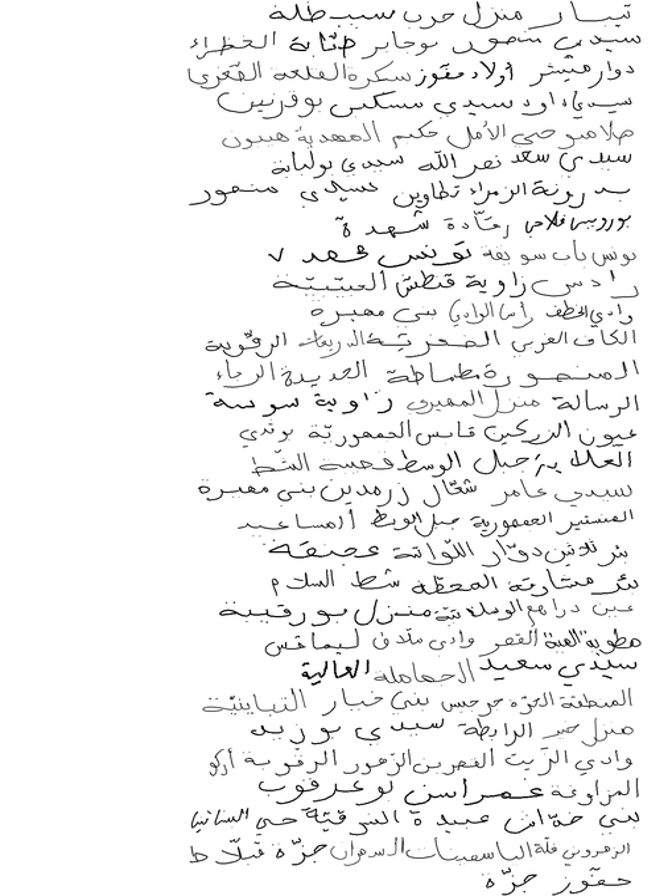 تيبار منزل حرب سبيطلة
سيدي منصور بوجابر طبّابة الخضراء
دوار هيشر أولاد مفوز سكرة القلعة الصغرى
سيدي داود سيدي مسكين بوقرنين
صلامبو حي الأمل حكيم المهدية هيبون
سيدي سعد نصر الله سيدي بولبابة
بدرونة الزهراء تطاوين سيدي منصور
بورويس فلاحي رقّادة شهدة
تونس باب سويقة تونس محمد ٧
رادس زاوية قنطش العيثيثة
وادي الخطف رأس الوادي بني مهيرة
الكاف الغربي الصخريّة الذريعات الرقوبة
المنصورة مطماطة الجديدة الرجاء
الرسالة منزل المهيري زاوية سوسة
عيون الزركين قابس الجمهوريّة بوثدي
العلا جبل الوسط قفصة الشط
سيدي عامر شعّال زرمدين بني مهيرة
المنستير الجمهورية جبل الوسط المساعيد
بئر ثلاثين دوّار اللّواتة
بئر مشارقة المحطّة شط السلام
عين دراهم الوسلاتيّة منزل بورقيبة
القصر وادي
سيدي سعيد الحمامله العالية
المنطقة الحرّة جرجيس بني خيار التباينيّة
منزل الرابطة سيدي بوزيد
وادي الزيت القصرين الزهور الرقوبة أركو
المزاوغة عمراسن بوعرقوب
بني حسّان عبيدة الشرقيّة حي البساتين
الزعروني قلّة الياسمينات السمران جزّة قبلاط
حفّوز جزّة